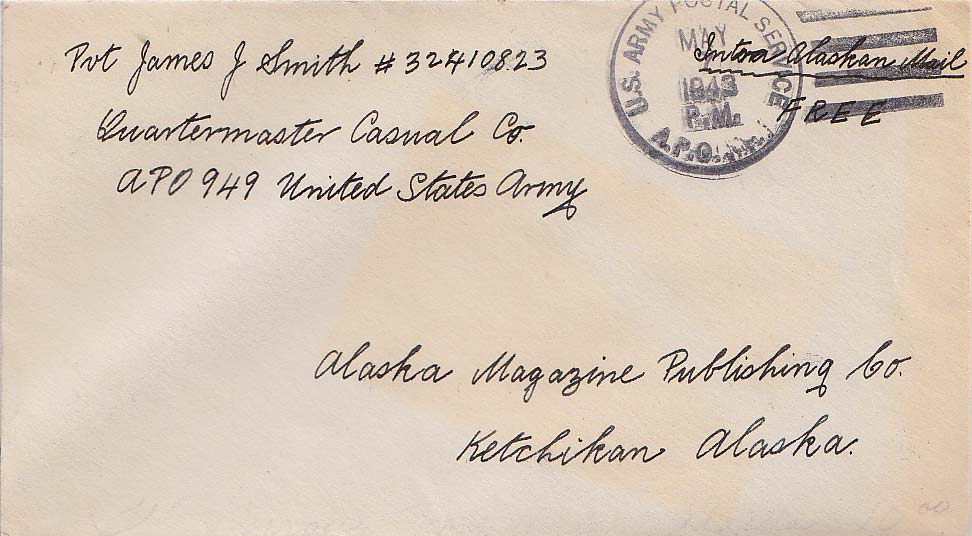 Pvt James J Smith # 32410823
Quartermaster Casual Co.
APO 949 United States Army
U.S. ARMY POSTAL SERVICE
MAY
1943
P.M.
A.P.O.
Intra Alaskan Mail
FREE
Alaska Magazine Publishing Co.
Ketchikan Alaska.